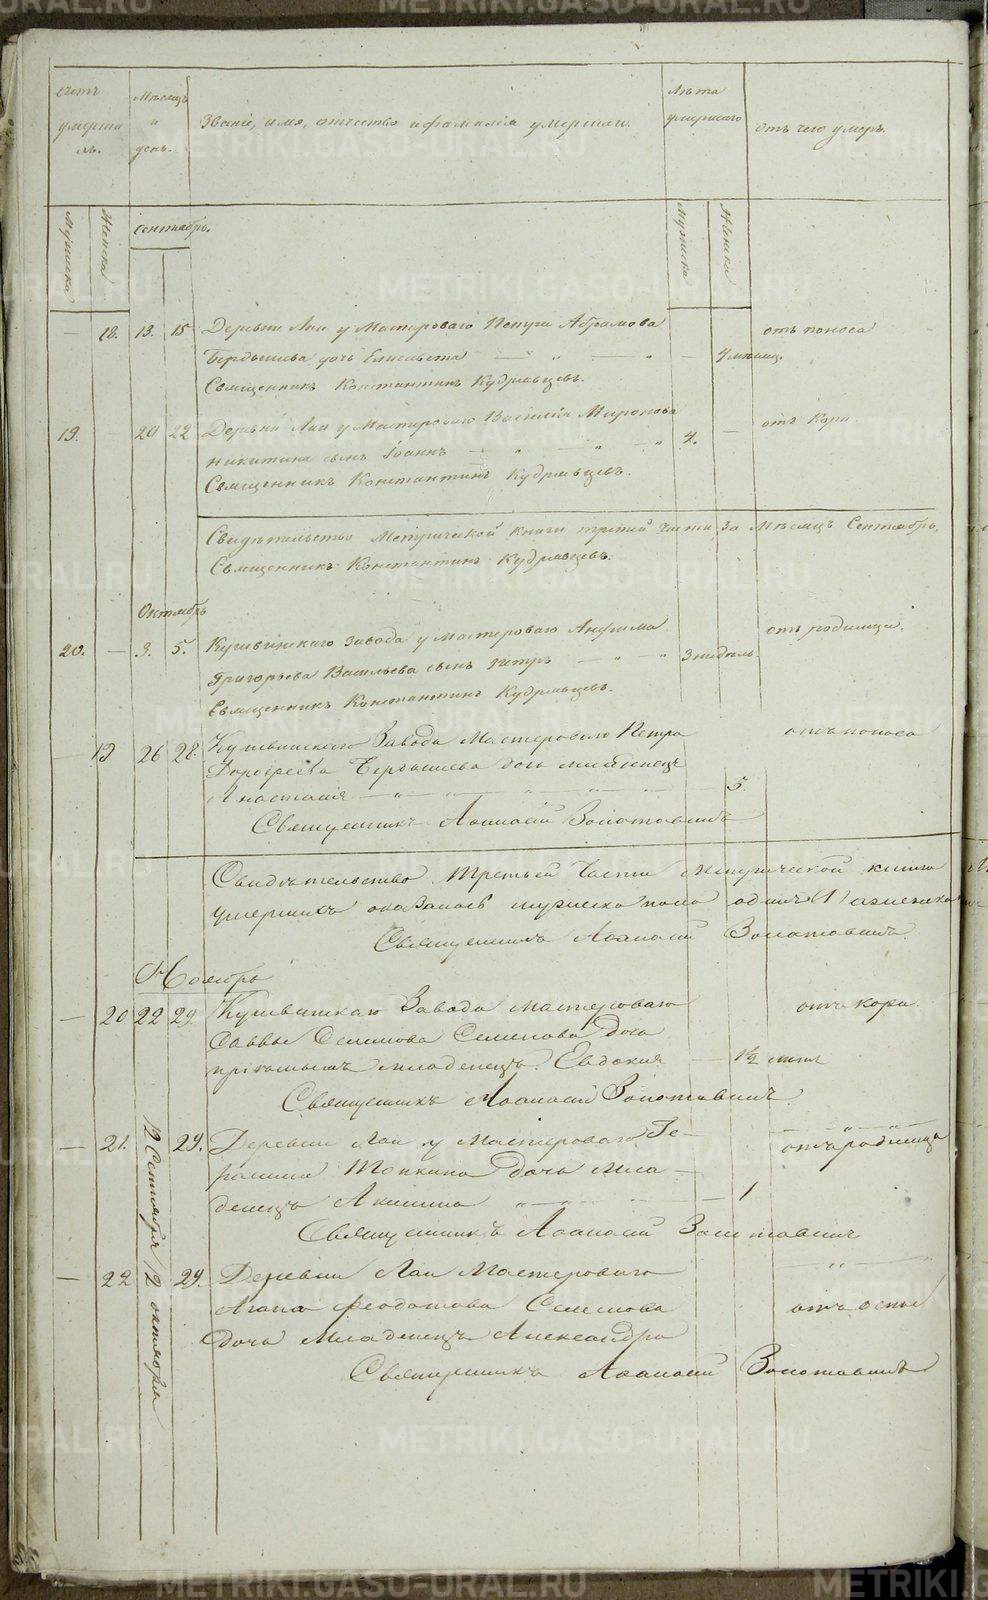 счетъ умершихъ
Мѣсяцъ и день.
Званіе, имя, отчество и фамилія умершаго.
Лѣта умершаго
отъ чего умеръ.
Мужска
Женска
Сентябрь.
Мужска
Женска
— 18. 13. 15 Деревни Лаи у Мастероваго Абрамова отъ поноса
Бердышева дочь Елисавета — „ — „ 4 мѣсяц.
Священникъ Константинъ Кудрявцевъ.
19. 20 22 Деревни Лаи у Мастероваго Василія Миронова отъ Кори
Никитина сынъ Іоаннъ — „ — „ — „ 4. —
Священникъ Константинъ Кудрявцевъ.
Свидѣтельство Метрической книги третей части за Мѣсяцъ Сентябрь,
Священникъ Константинъ Кудрявцевъ.
Октябрь
20. — 3. 5. Кушвинскаго завода у мастероваго отъ родимца.
Григорьева Васильева сынъ Петръ — „ — „ 3 недѣль.
Священникъ Константинъ Кудрявцевъ.
— 19 26 28. Кушвинскаго Завода Мастероваго Петра отъ поноса
Бердышева дочь младенецъ
Анастасія — „ — „ — „ — 5
Священникъ Аѳанасій Золотавинъ
Свидѣтельство Третьей Части Метрической книги
умершихъ оказалось мужеска пола одинъ (1) а женска
Священникъ Аѳанасій Золотавинъ
Ноябрь
— 20 22 29. Кушвинскаго Завода мастероваго отъ кори.
Саввы Семенова дочь
младенецъ Евдокия — 1½ лѣтъ
Священникъ Аѳанасій Золотавинъ
— 21. 12 Сентября 29. Деревни Лаи у Мастероваго Ге- отъ родимца
Топкина дочь мла-
денецъ Акилина — „ — 1
Священникъ Аѳанасій Золотавинъ
— 22 12 октября 29. Деревни Лаи Мастероваго — „ —
Агапа Феодотова Семенова отъ оспы
дочь Младенецъ Александра
Священникъ Аѳанасій Золотавинъ
METRIKI.GASO-URAL.RU